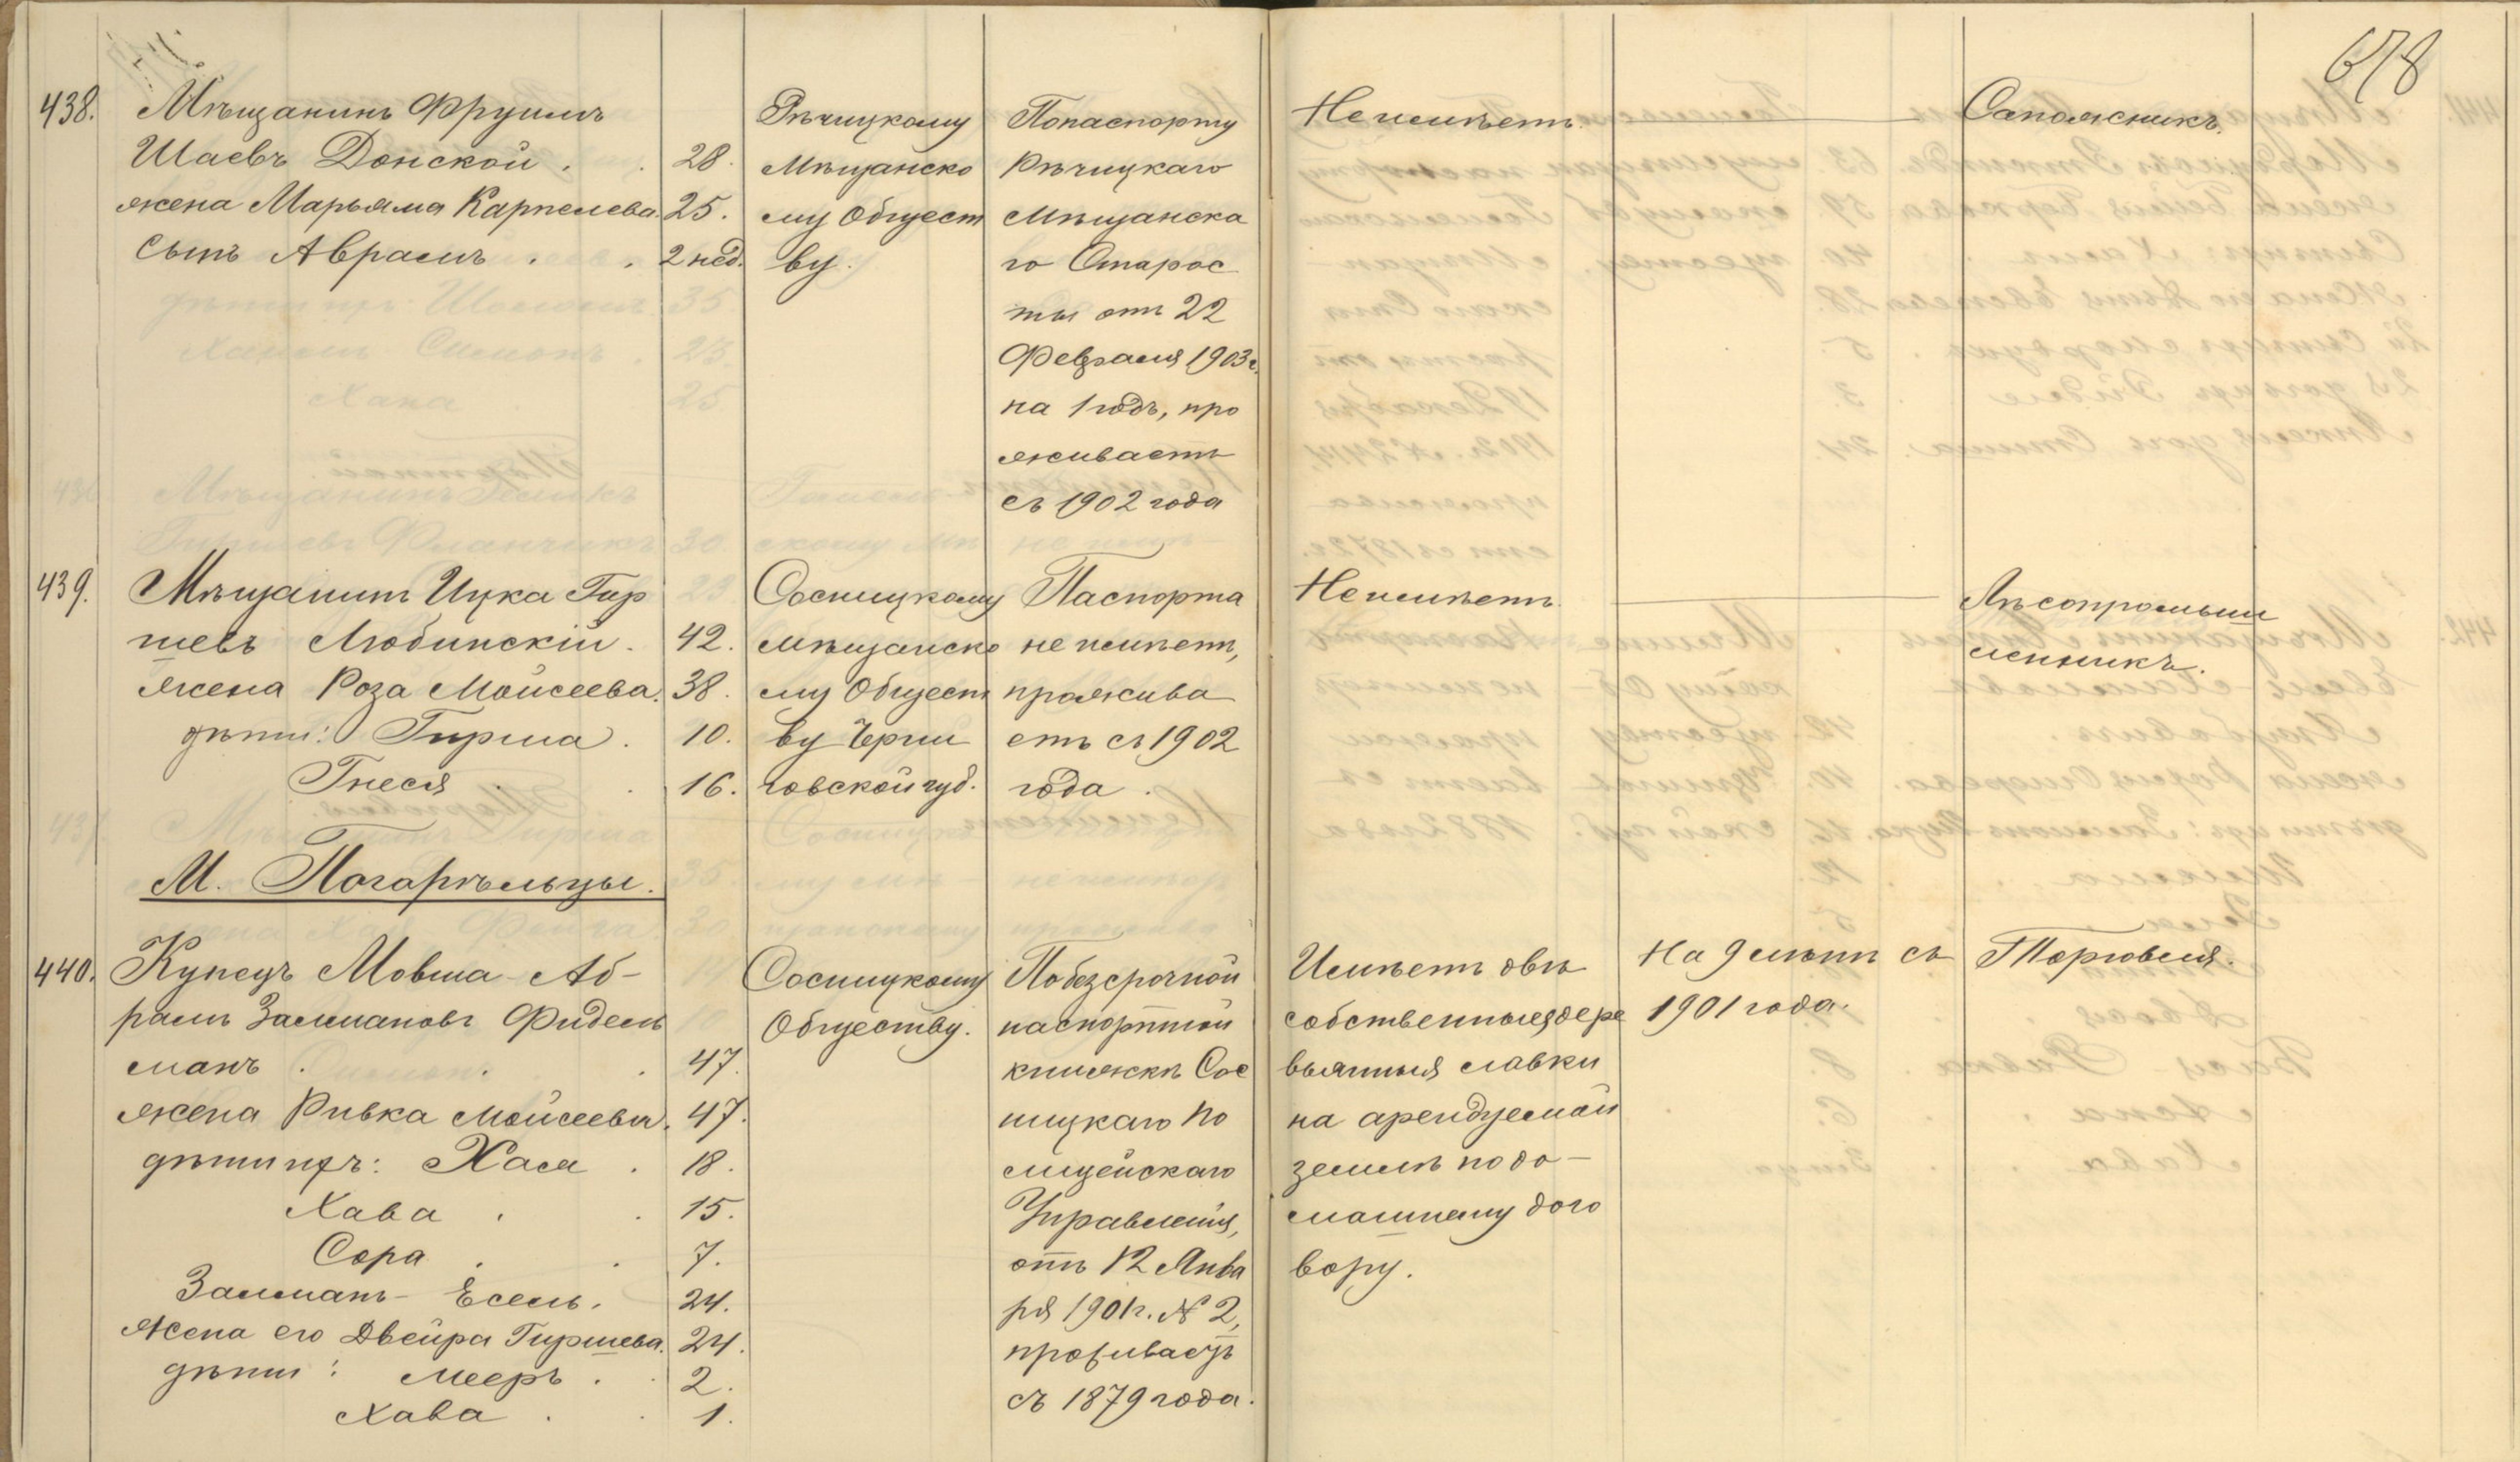 678
438. Мѣщанинъ Фруимъ
Шаевъ Донской . . 28.
жена Марьяма Карпелева. 25.
сынъ Аврамъ . . 2 нед.
Рѣчицкому
Мѣщанско
му Общест
ву.
Попаспорту
Рѣчицкаго
Мѣщанска
го Старос
ты отъ 22
Февраля 1903 г.
на 1 годъ, про
живаетъ
съ 1902 года
Неимѣетъ.
Сапожникъ.
439. Мѣщанинъ Ицка Гир
шевъ Любинскій . 42.
жена Роза Мойсеева. 38.
дѣти: Гирша . 10.
Гнеся . . 16.
Сосницкому
мѣщанско
му Общест
ву Черни
говской губ.
Паспорта
не имѣетъ,
прожива
етъ съ 1902
года .
Неимѣетъ.
Лѣсопромыш
ленникъ.
М. Погарѣльцы.
440. Купецъ Мовша - Аб-
рамъ Залмановъ Фидель
манъ . . . 47.
жена Ривка Мойсеева. 47.
дѣти ихъ: Хася . 18.
Хава . . 15.
Сора . . 7.
Залманъ - Есель. 24.
жена его Двейра Гиршева. 24.
дѣти: Мееръ . . 2.
Хава . . 1.
Сосницкому
Обществу.
Побезсрочной
паспортной
книжкѣ Сос
ницкаго по
лицейскаго
Управленія,
отъ 12 Янва
ря 1901 г. № 2,
проживаетъ
съ 1879 года.
Имѣетъ двѣ
собственныя дере
вянныя лавки
на арендуемой
землѣ по до-
машнему дого
вору.
На 9 лѣтъ съ
1901 года.
Торговля.